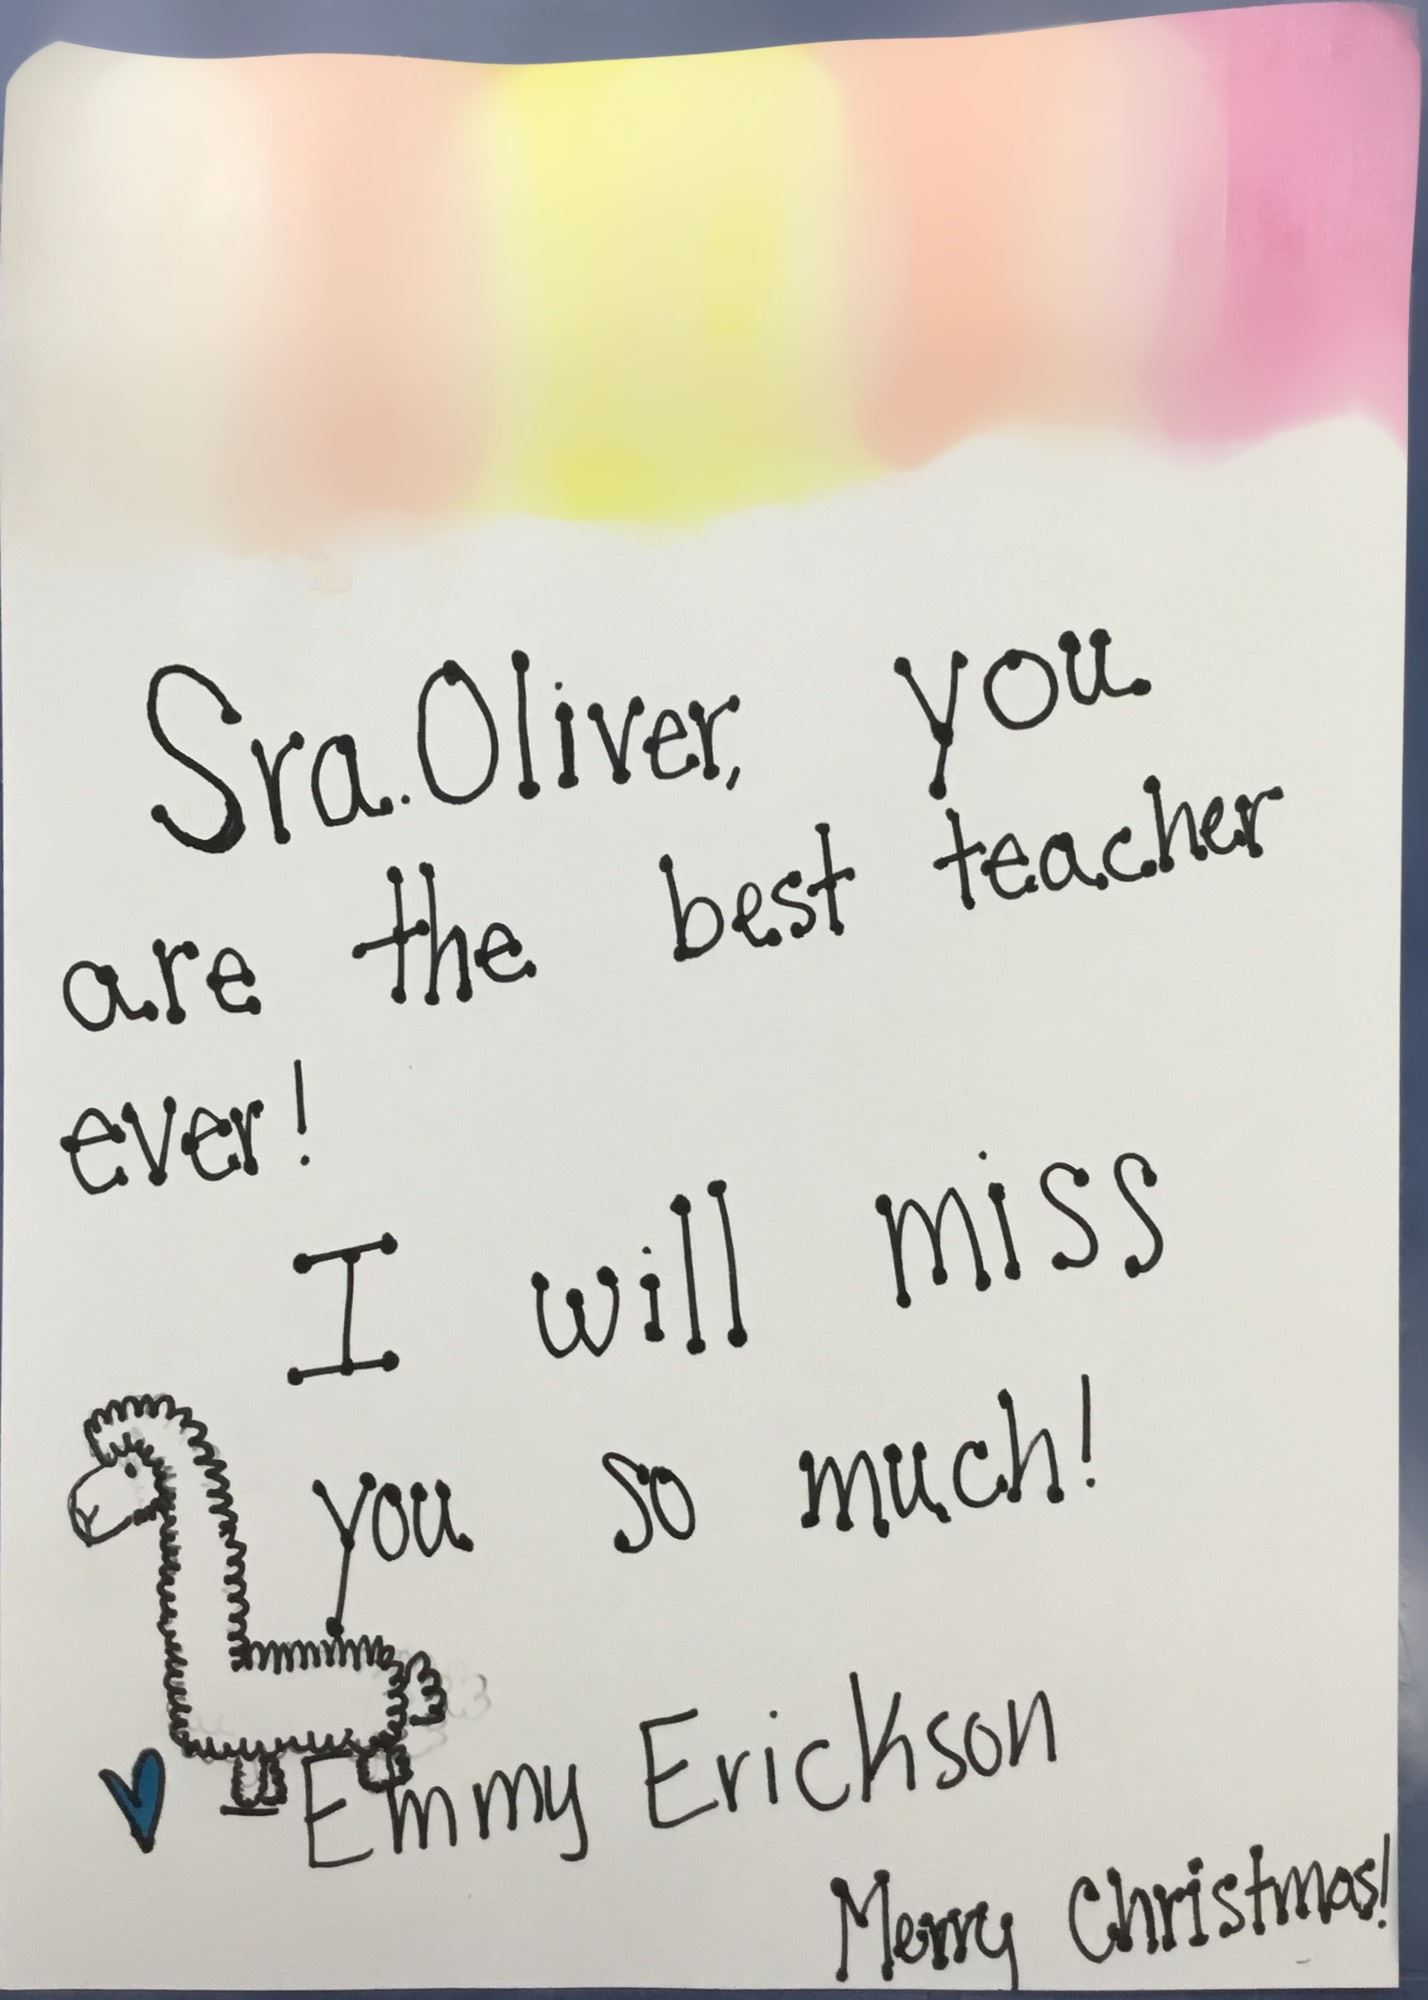 Sra. Oliver, you
are the best teacher
ever!
I will miss
you so much!
Emmy Erickson
Merry Christmas!